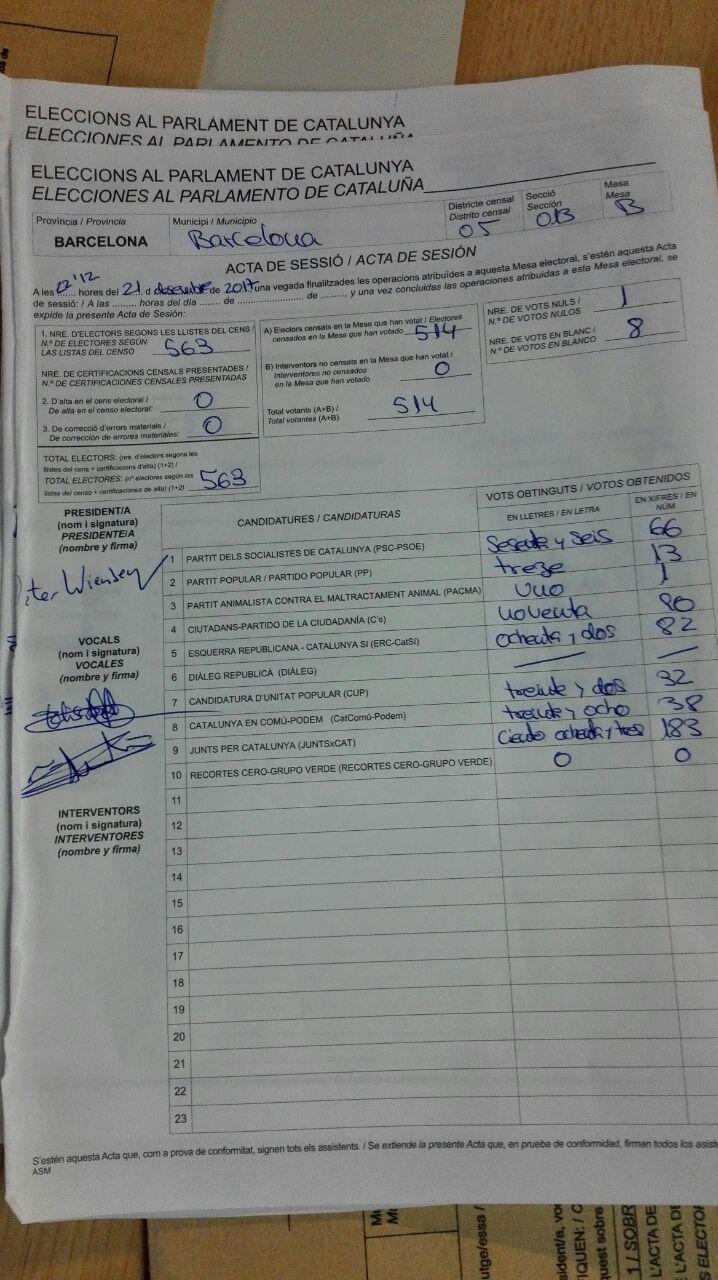 ELECCIONS AL PARLAMENT DE CATALUNYA
ELECCIONES AL PARLAMENTO DE CATALUÑA
ELECCIONS AL PARLAMENT DE CATALUNYA
ELECCIONES AL PARLAMENTO DE CATALUÑA
Província / Provincia
BARCELONA
Municipi / Municipio
Barcelona
Districte censal
Distrito censal
05
Secció
Sección
Mesa
Mesa
B
ACTA DE SESSIÓ / ACTA DE SESIÓN
A les 22'12 hores del 21 d desembre de 2017 una vegada finalitzades les operacions atribuïdes a aquesta Mesa electoral, s'estén aquesta Acta
de sessió: / A las ......... horas del día ....... de ........................... de ........., y una vez concluidas las operaciones atribuidas a esta Mesa electoral, se
expide la presente Acta de Sesión:
1. NRE. D'ELECTORS SEGONS LES LLISTES DEL CENS /
N.º DE ELECTORES SEGÚN
LAS LISTAS DEL CENSO 563
NRE. DE CERTIFICACIONS CENSALS PRESENTADES /
N.º DE CERTIFICACIONES CENSALES PRESENTADAS
2. D'alta en el cens electoral /
De alta en el censo electoral: 0
3. De correcció d'errors materials /
De corrección de errores materiales: 0
TOTAL ELECTORS: (nre. d'electors segons les
llistes del cens + certificacions d'alta) (1+2) /
TOTAL ELECTORES: (nº electores según las
listas del censo + certificaciones de alta) (1+2) 563
A) Electors censats en la Mesa que han votat / Electores
censados en la Mesa que han votado 514
B) Interventors no censats en la Mesa que han votat /
Interventores no censados
en la Mesa que han votado 0
Total votants (A+B) /
Total votantes (A+B) 514
NRE. DE VOTS NULS /
N.º DE VOTOS NULOS 1
NRE. DE VOTS EN BLANC /
N.º DE VOTOS EN BLANCO 8
PRESIDENT/A
(nom i signatura)
PRESIDENTE/A
(nombre y firma)
VOCALS
(nom i signatura)
VOCALES
(nombre y firma)
INTERVENTORS
(nom i signatura)
INTERVENTORES
(nombre y firma)
CANDIDATURES / CANDIDATURAS
VOTS OBTINGUTS / VOTOS OBTENIDOS
EN LLETRES / EN LETRA
EN XIFRES / EN NÚM.
1 PARTIT DELS SOCIALISTES DE CATALUNYA (PSC-PSOE) Sesenta y seis 66
2 PARTIT POPULAR / PARTIDO POPULAR (PP) treze 13
3 PARTIT ANIMALISTA CONTRA EL MALTRACTAMENT ANIMAL (PACMA) uno 1
4 CIUTADANS-PARTIDO DE LA CIUDADANÍA (C's) noventa 90
5 ESQUERRA REPUBLICANA - CATALUNYA SI (ERC-CatSí) ochenta y dos 82
6 DIÀLEG REPUBLICÀ (DIÀLEG) — —
7 CANDIDATURA D'UNITAT POPULAR (CUP) treinta y dos 32
8 CATALUNYA EN COMÚ-PODEM (CatComú-Podem) treinta y ocho 38
9 JUNTS PER CATALUNYA (JUNTSxCAT) Ciento ochenta y tres 183
10 RECORTES CERO-GRUPO VERDE (RECORTES CERO-GRUPO VERDE) 0 0
11
12
13
14
15
16
17
18
19
20
21
22
23
S'estén aquesta Acta que, com a prova de conformitat, signen tots els assistents. / Se extiende la presente Acta que, en prueba de conformidad, firman todos los
ASM